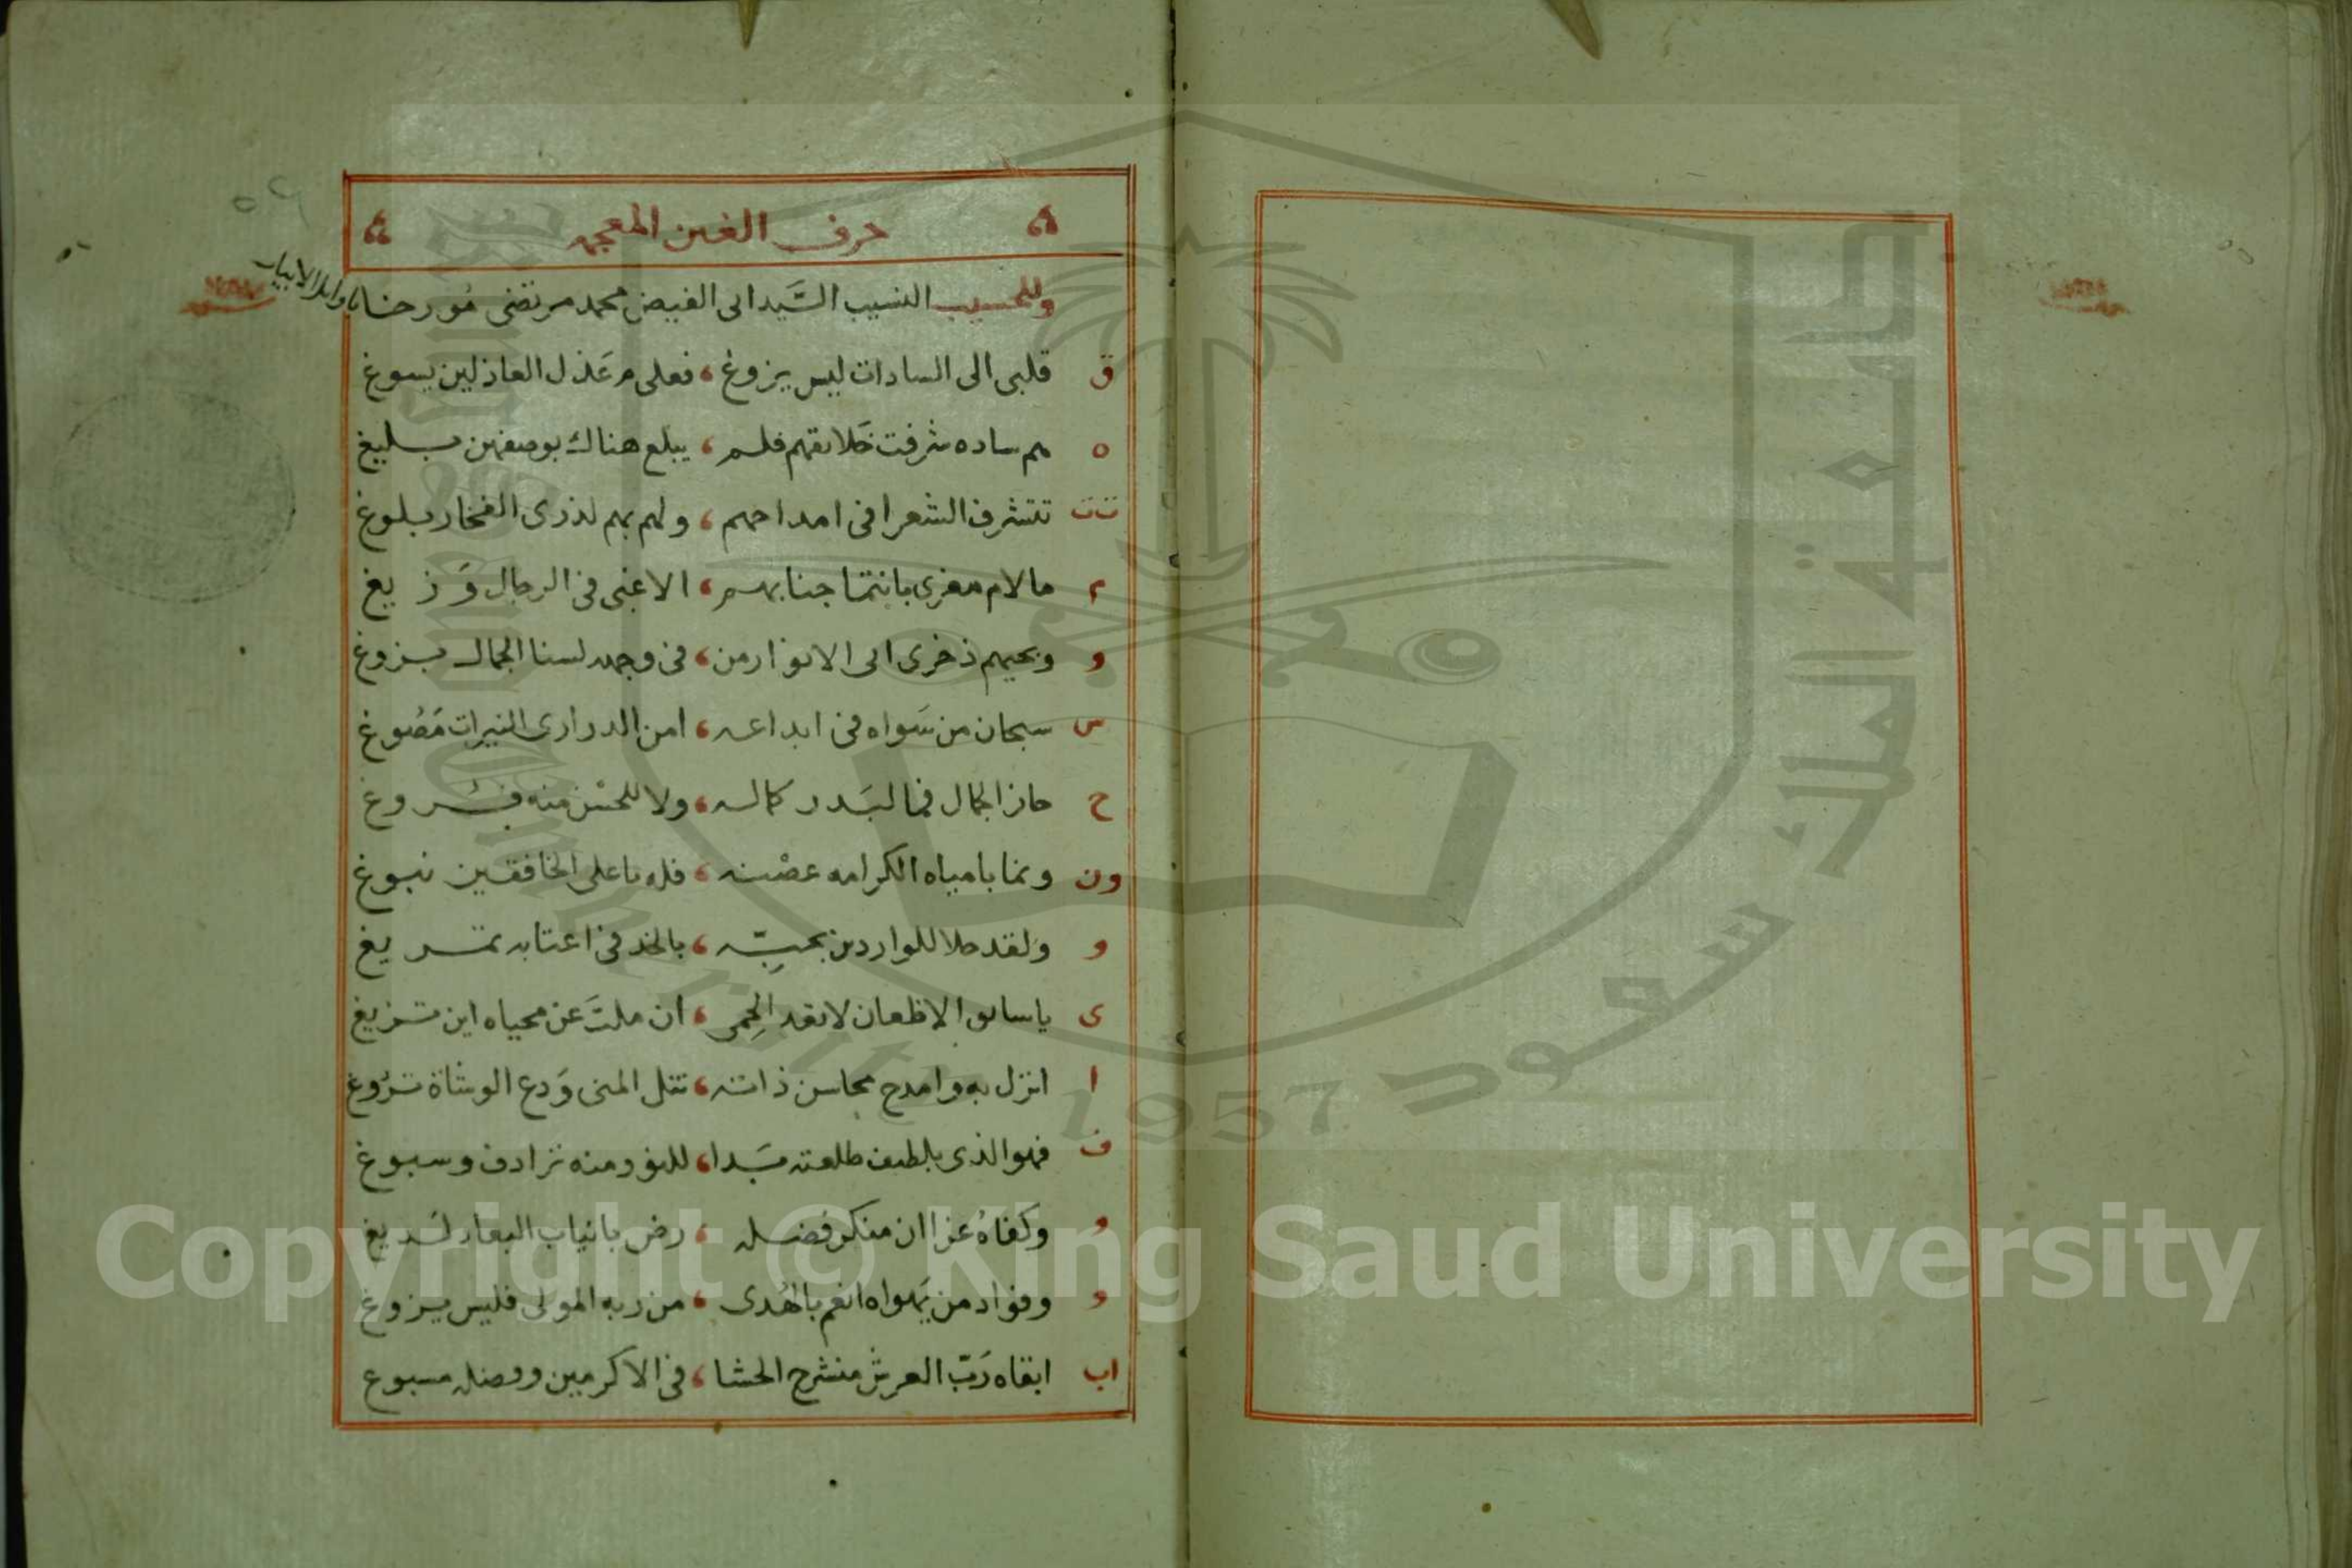 حرف الغين المعجمه
وللحسيب النسيب السَّيد ابى الفيض محمد مرتضى مُورخا باوايل الابيات
ق قلبى الى السادات ليس يزوغ ، فعلى م عَذل العاذلين يسوغ
ه هم ساده شرفت خَلايقهم فلم ، يبلغ هناك بوصفهن بليغ
ت ت تتشرف الشعرا فى امداحهم ، ولهم بهم لذرى الفخار بلوغ
م مالام مغرى بانتما جنابهم ، الا غبى فى الرجال وَزيغ
و وبحبهم ذخرى ابى الانوار من ، فى وجهه لسنا الجمال بزوغ
س سبحان من سَواه فى ابداعه ، امن الدرارى النيرات مَصُوغ
ح حاز الجمال فما لبَدر كماله ، ولا للحسْن منه فُروغ
ون ونما بامياه الكرامه غصْنه ، فله باعلى الخافقين نبوغ
و ولقد حلا للواردين بحبِّه ، بالخد فى اعتابه تمريغ
ى ياسايق الاظعان لا تعد الحِمى ، ان ملتَ عن محياه اين تزيغ
ا انزل به وامدح محاسن ذاته ، تنل المنى وَدع الوشاة تَرُوغ
ف فهو الذى بلطيف طلعته بَدا ، للنور منه ترادف وسبوغ
و وكفاهُ عزا ان منكر فضله ، رض بانياب البعاد لَديغ
و وفواد من يَهواه انعم بالهُدى ، من ربه المولى فليس يزوغ
اب ابقاه رَبّ العرش منشرح الحشا ، فى الاكرمين وفضله مسبوغ
Copyright © King Saud University
جامعة الملك سعود
1957
King Saud University